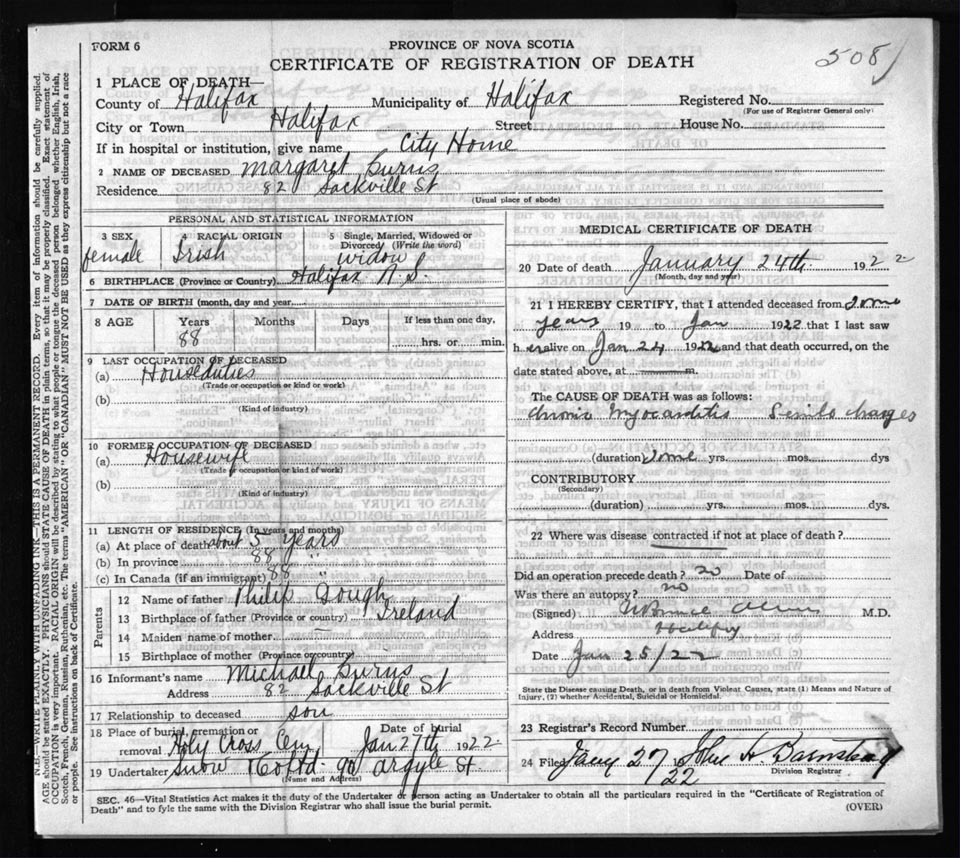 FORM 6
PROVINCE OF NOVA SCOTIA
CERTIFICATE OF REGISTRATION OF DEATH
508
1 PLACE OF DEATH—
County of Halifax Municipality of Halifax Registered No.
(For use of Registrar General only)
City or Town Halifax Street House No.
If in hospital or institution, give name City Home
2 NAME OF DECEASED Margaret Burns
Residence 82 Sackville St
(Usual place of abode)
PERSONAL AND STATISTICAL INFORMATION
3 SEX female
4 RACIAL ORIGIN Irish
5 Single, Married, Widowed or Divorced (Write the word) widow
6 BIRTHPLACE (Province or Country) Halifax N.S.
7 DATE OF BIRTH (month, day and year)
8 AGE Years Months Days If less than one day,
88 hrs. or min.
9 LAST OCCUPATION OF DECEASED
(a) Houseduties
(Trade or occupation or kind or work)
(b)
(Kind of industry)
10 FORMER OCCUPATION OF DECEASED
(a) Housewife
(Trade or occupation or kind of work)
(b)
(Kind of industry)
11 LENGTH OF RESIDENCE (In years and months)
(a) At place of death about 5 years
(b) In province 88 "
(c) In Canada (if an immigrant) 88 "
Parents
12 Name of father Philip Gough
13 Birthplace of father (Province or country) Ireland
14 Maiden name of mother
15 Birthplace of mother (Province or country)
16 Informant's name Michael Burns
Address 82 Sackville St
17 Relationship to deceased son
18 Place of burial, cremation or removal Holy Cross Cem Date of burial Jan 27th 1922
19 Undertaker Snow & Co Ltd 90 Argyle St
(Name and Address)
MEDICAL CERTIFICATE OF DEATH
20 Date of death January 24th 1922
(Month, day and year)
21 I HEREBY CERTIFY, that I attended deceased from some
years 19 to Jan 1922 that I last saw
her alive on Jan 24 1922 and that death occurred, on the
date stated above, at m.
The CAUSE OF DEATH was as follows:
Chronic Myocarditis Senile changes
(duration) some yrs. mos. dys
CONTRIBUTORY
(Secondary)
(duration) yrs. mos. dys.
22 Where was disease contracted if not at place of death?
Did an operation precede death? no Date of
Was there an autopsy? no
(Signed) M.D.
Address Halifax
Date Jan 25/22
State the Disease causing Death, or in death from Violent Causes, state (1) Means and Nature of
Injury, (2) whether Accidental, Suicidal or Homicidal.
23 Registrar's Record Number
24 Filed Jany 27/22 John H Barnstead
Division Registrar
SEC. 46—Vital Statistics Act makes it the duty of the Undertaker or person acting as Undertaker to obtain all the particulars required in the "Certificate of Registration of
Death" and to fyle the same with the Division Registrar who shall issue the burial permit.
(OVER)
N.B.—WRITE PLAINLY WITH UNFADING INK—THIS IS A PERMANENT RECORD. Every item of information should be carefully supplied.
AGE should be stated EXACTLY. PHYSICIANS should STATE CAUSE OF DEATH in plain terms, so that it may be properly classified. Exact statement of
OCCUPATION is very important. RACIAL ORIGIN will be described by stating to what people or tongue the deceased person belonged whether English, Irish,
Scotch, French, German, Russian, Ruthenian, etc. The terms "AMERICAN" OR "CANADIAN" MUST NOT BE USED as they express citizenship but not a race
or people. See instructions on back of Certificate.